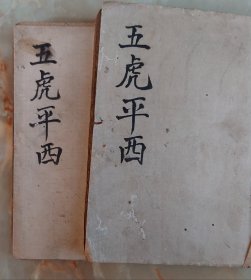 五虎平西
五虎平西